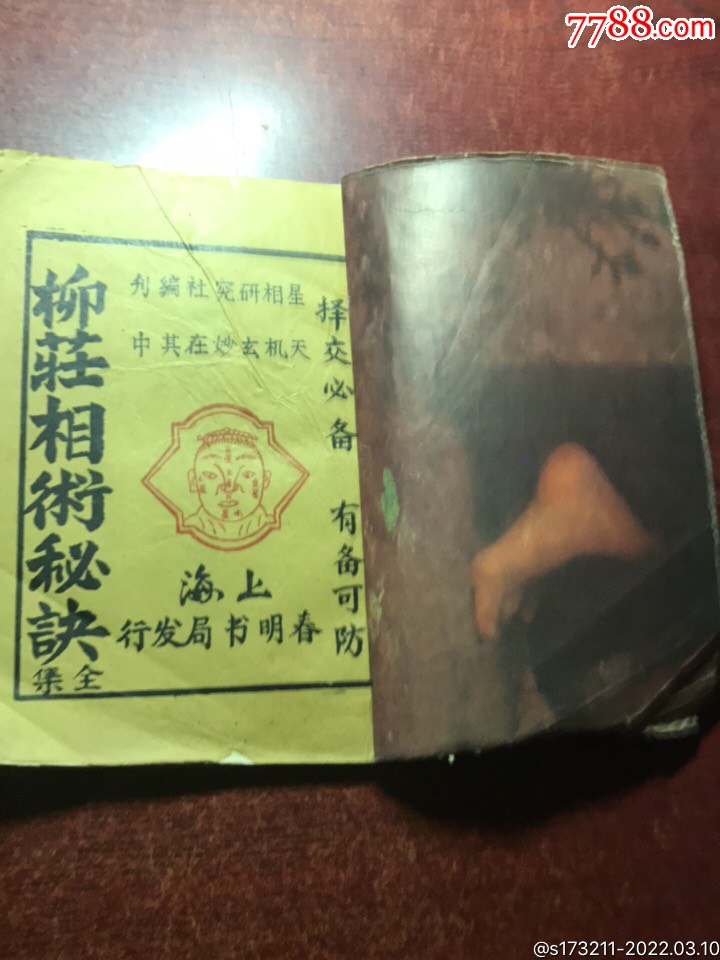 7788.com
择交必备 有备可防
星相研究社编刊
天机玄妙在其中
上海
春明书局发行
柳莊相術秘訣
全集
@s173211-2022.03.10